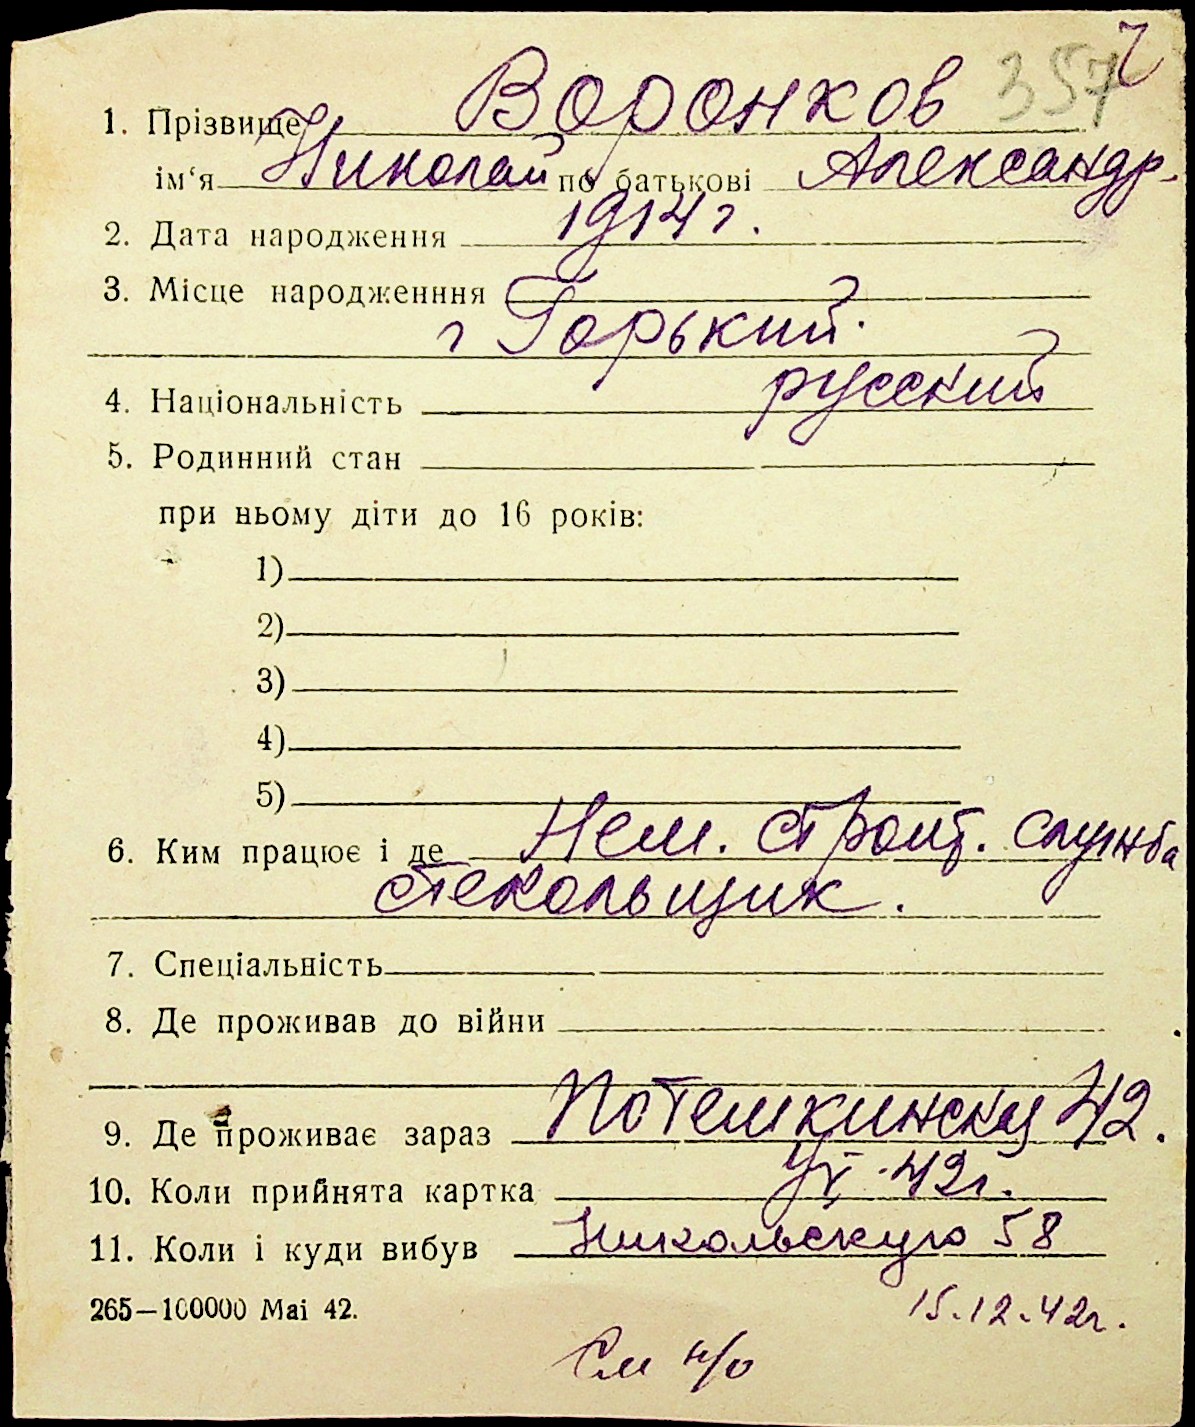 357
1. Прізвище Воронков
ім‘я Николай по батькові Александр.
2. Дата народження 1914 г.
3. Місце народженння
г Горький.
4. Національність русский
5. Родинний стан
при ньому діти до 16 років:
1)
2)
3)
4)
5)
6. Ким працює і де Нем. строит. служба
стекольщик.
7. Спеціальність
8. Де проживав до війни
9. Де проживає зараз Потемкинская 42.
10. Коли прийнята картка 42г.
11. Коли і куди вибув Никольскую 58
265—100000 Mai 42. 15.12.42г.
См н/о